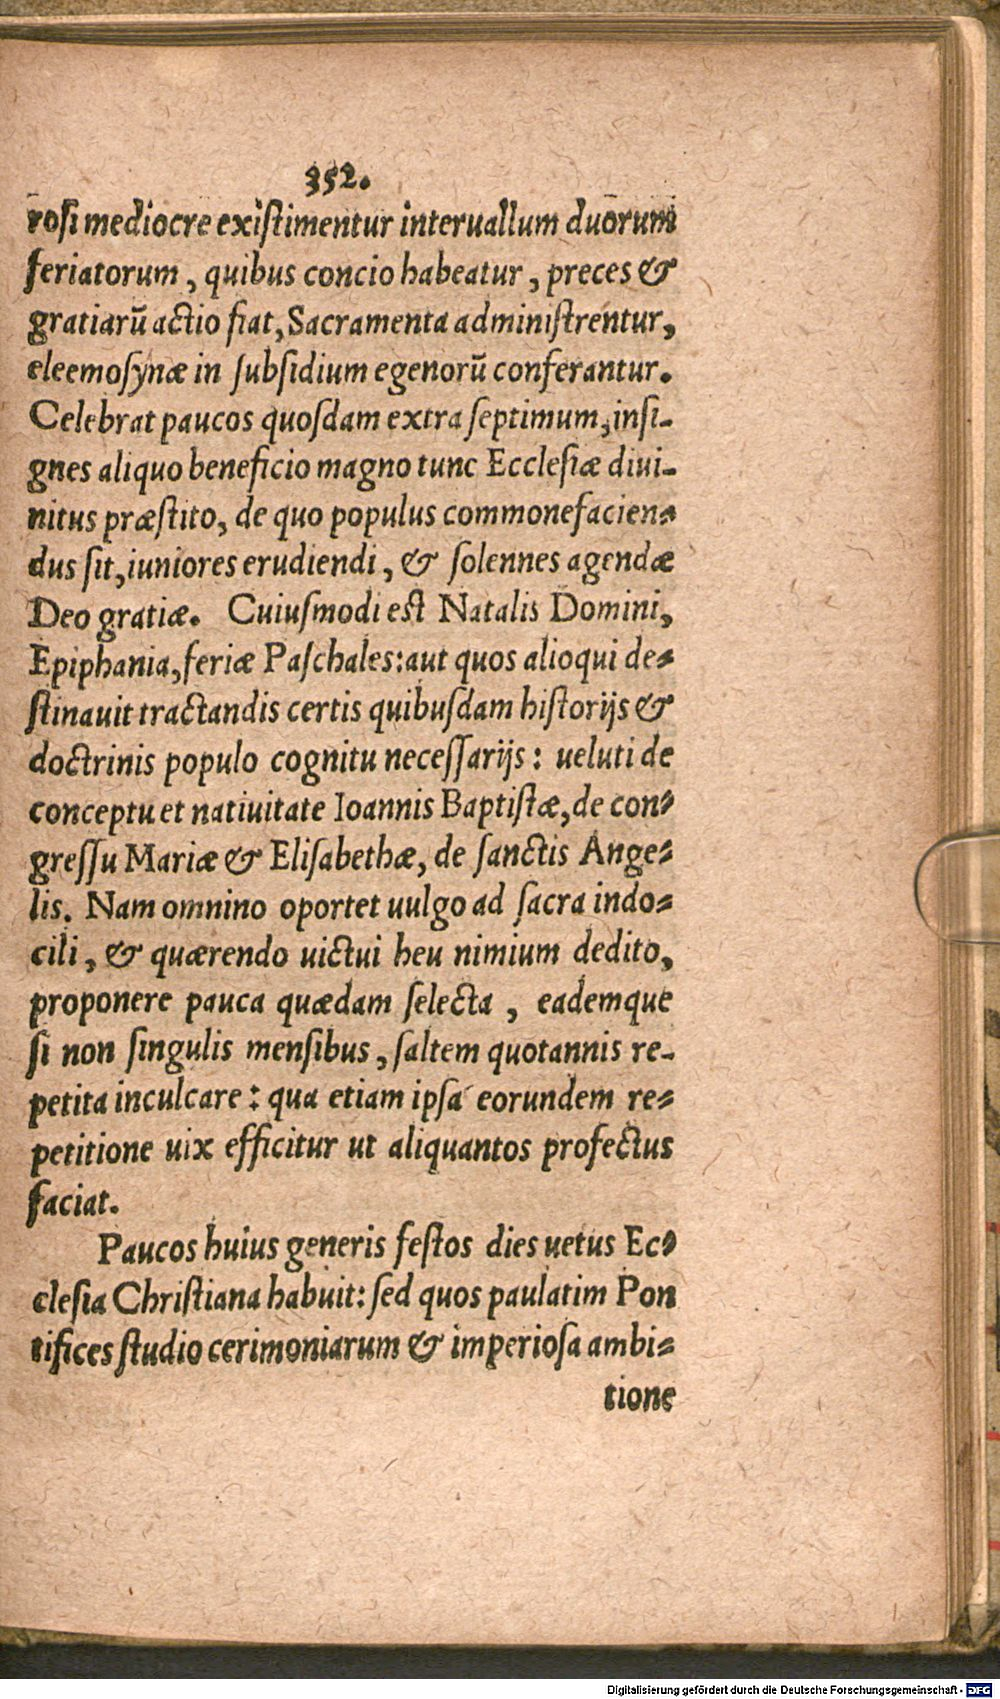 352.
rosi mediocre existimentur interuallum duorum
feriatorum, quibus concio habeatur, preces &
gratiarũ actio fiat, Sacramenta administrentur,
eleemosynæ in subsidium egenorũ conferantur.
Celebrat paucos quosdam extra septimum, insi-
gnes aliquo beneficio magno tunc Ecclesiæ diui-
nitus præstito, de quo populus commonefacien-
dus sit, iuniores erudiendi, & solennes agendæ
Deo gratiæ. Cuiusmodi est Natalis Domini,
Epiphania, feriæ Paschales: aut quos alioqui de-
stinauit tractandis certis quibusdam historijs &
doctrinis populo cognitu necessarijs: ueluti de
conceptu et natiuitate Ioannis Baptistæ, de con-
gressu Mariæ & Elisabethæ, de sanctis Ange-
lis. Nam omnino oportet uulgo ad sacra indo-
cili, & quærendo uictui heu nimium dedito,
proponere pauca quædam selecta, eademque
si non singulis mensibus, saltem quotannis re-
petita inculcare: qua etiam ipsa eorundem re-
petitione uix efficitur ut aliquantos profectus
faciat.
Paucos huius generis festos dies uetus Ec-
clesia Christiana habuit: sed quos paulatim Pon
tifices studio cerimoniarum & imperiosa ambi-
tione
Digitalisierung gefördert durch die Deutsche Forschungsgemeinschaft - DFG